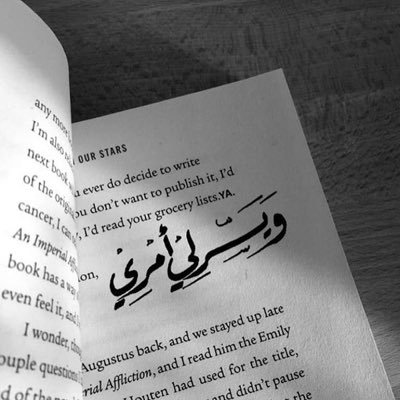 any more
I'm also
next book
of the orig
cancer, I
An Imperial Af
book has a wa
even feel it, and
I wonder,
ouple questions
OUR STARS
ever do decide to write
ou don't want to publish it, I'd
I'd read your grocery lists.YA.
وَيَسِّرْ لِيْ أَمْرِيْ
on,
Augustus back, and we stayed up late
rial Affliction, and I read him the Emily
Houten had used for the title,
and didn't pause